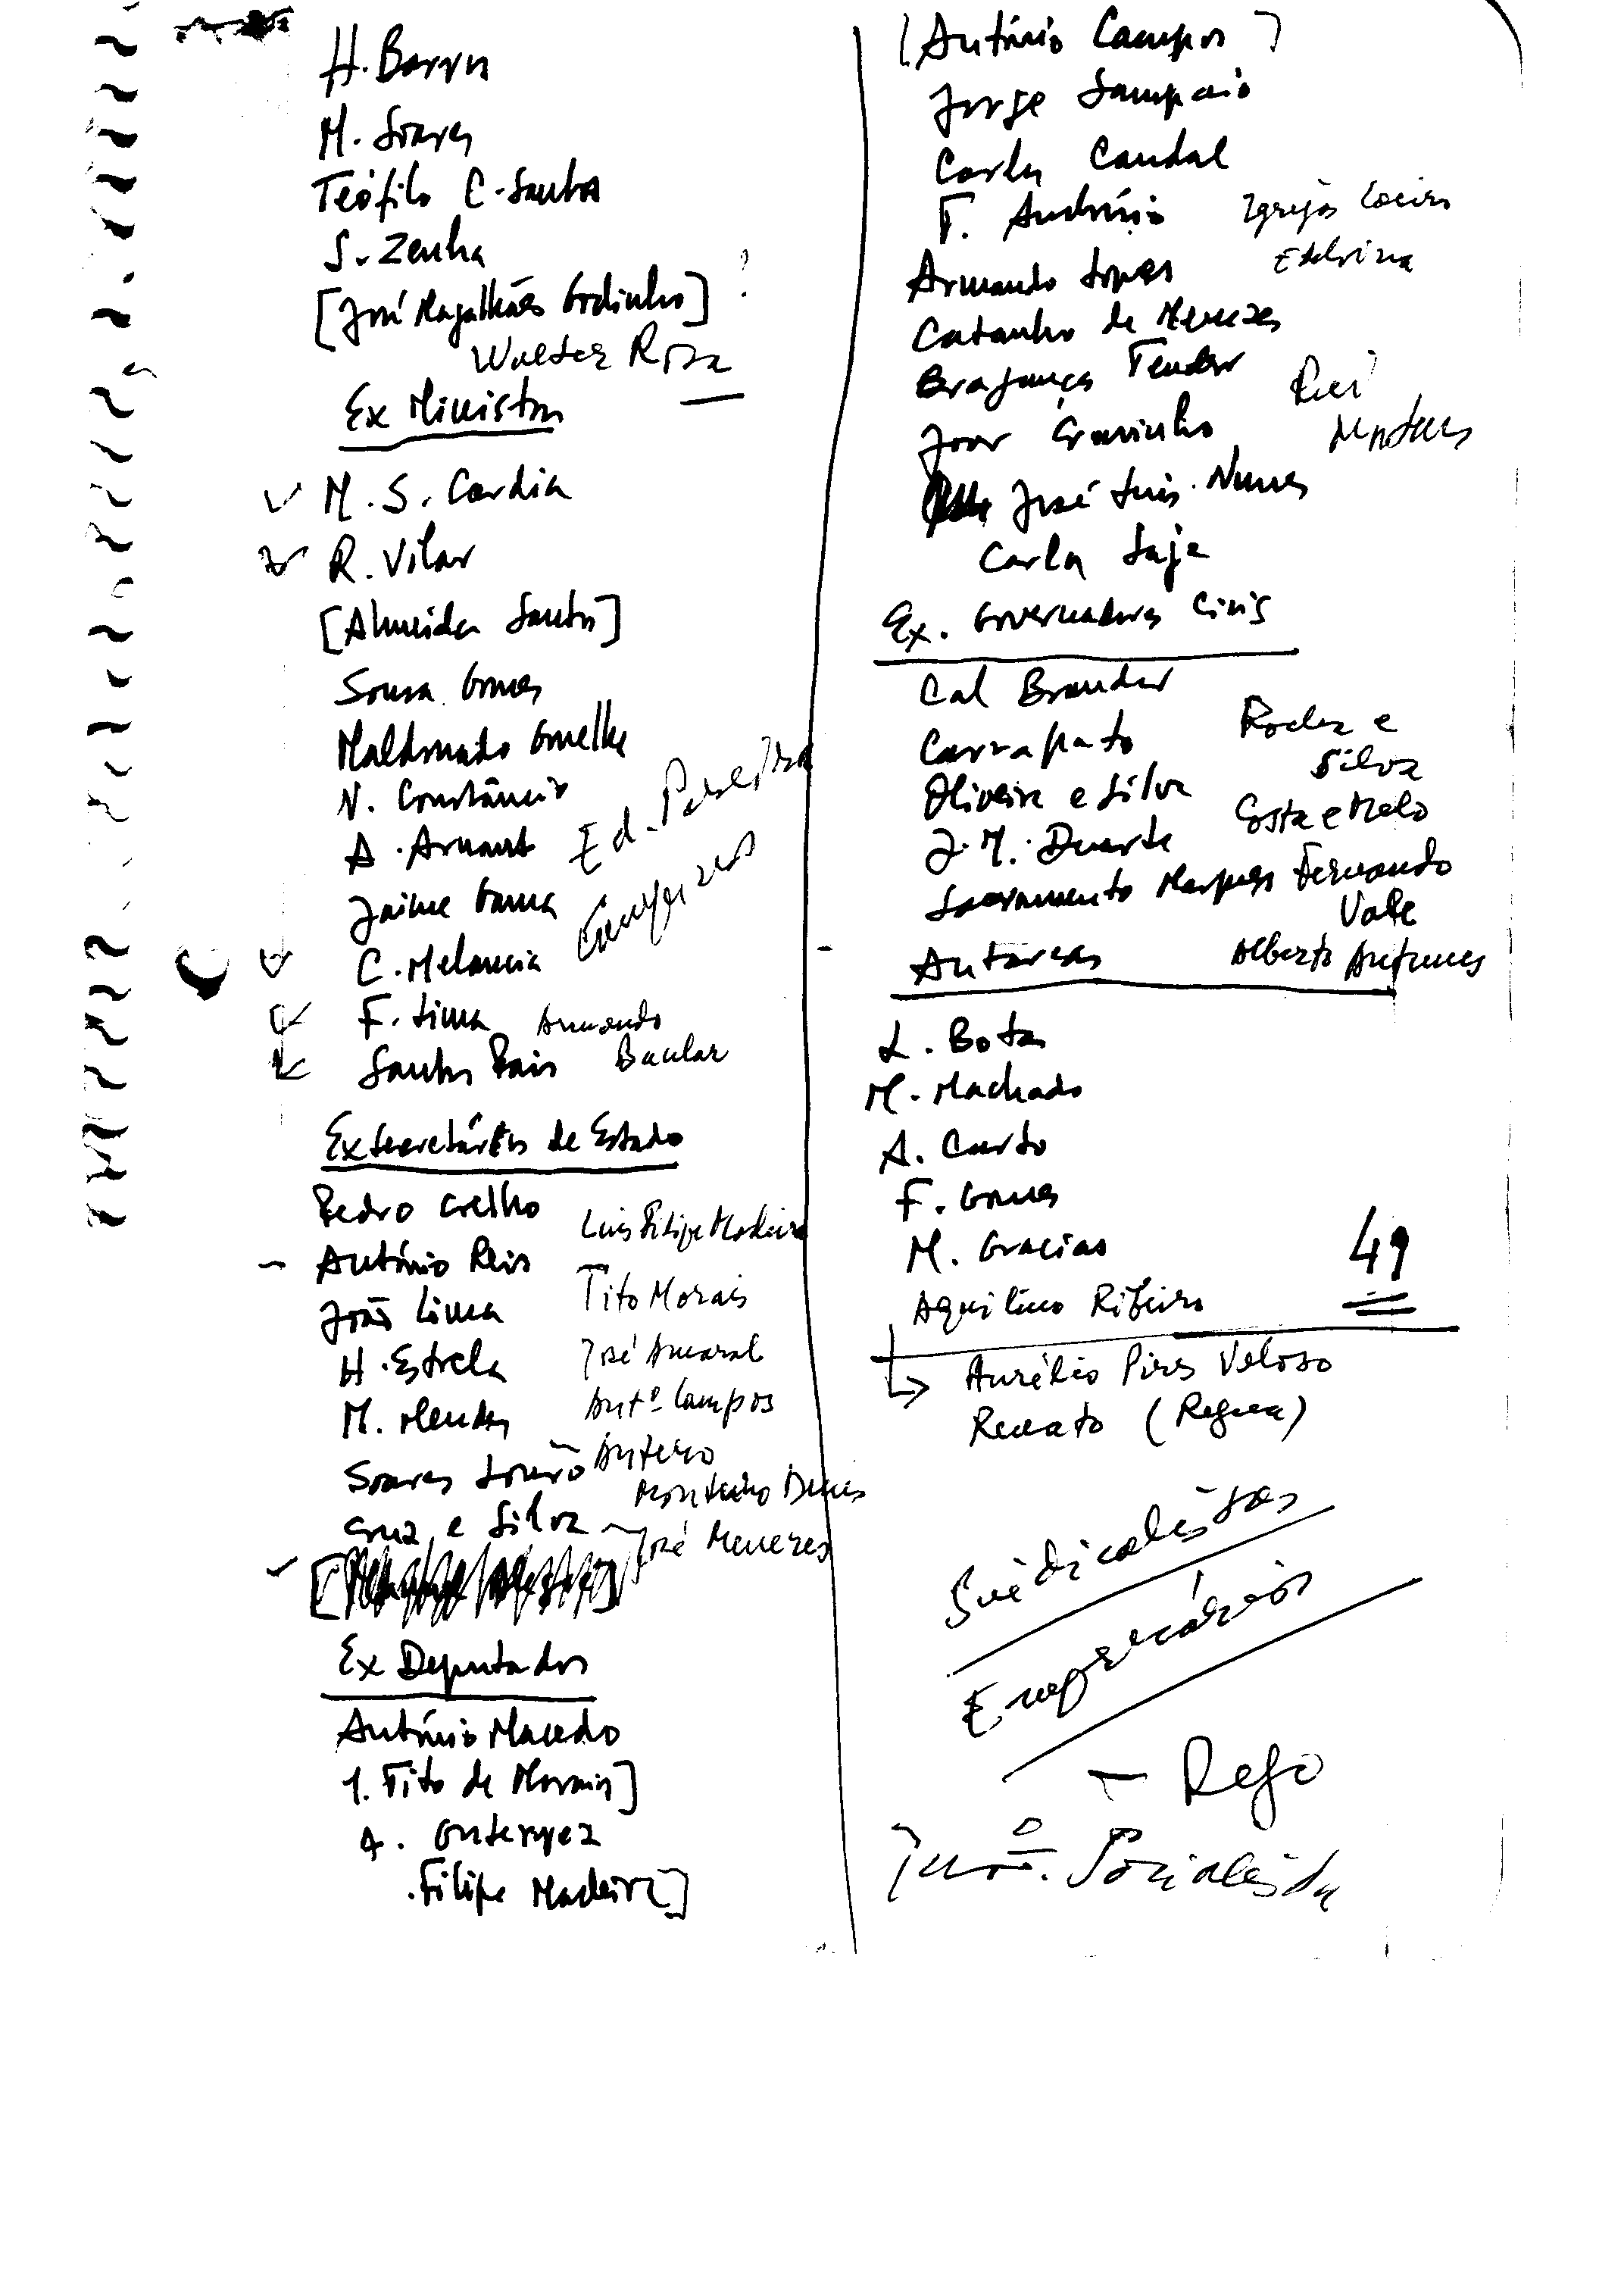 H. Barros
M. Soares
Teófilo C. Santos
S. Zenha
[José Magalhães Godinho] ?
Walter Rosa
Ex Ministros
M. S. Cardia
R. Vilar
[Almeida Santos]
Sousa Gomes
Maldonado Gonelha
N. Constâncio
A. Arnaut
Ed. Pereira
Jaime Gama
C. Melancia
F. Lima Armando
Santos Pais Bacelar
Ex Secretários de Estado
Pedro Coelho
Luis Filipe Madeira
António Reis
Tito Morais
João Lima
José Amaral
H. Estrela
Antº Campos
M. Mendes
Antero
Soares Louro
Monteiro Dinis
Cruz e Silva
José Meneres
Ex Deputados
António Macedo
1. Tito de Morais]
A. Guterres
Filipe Madeira]
[António Campos]
Jorge Sampaio
Carlos Candal
F. Andrónio Igrejas Caeiro
Etelvina
Armando Lopes
Catanho de Menezes
Bragança Tender
Rui Mateus
João Cravinho
José Luis Nunes
Carlos Laje
Ex. Governadores Civis
Cal Brandão
Carrapato
Rocha e Silva
Oliveira e Silva
Costa e Melo
J. M. Duarte
Sacramento Marques Fernando Vale
Autarcas Alberto Antunes
L. Botas
M. Machado
A. Curto
F. Gomes
M. Gracias
49
Aquilino Ribeiro
Aurélio Pires Veloso
Renato (Regua)
Sindicalistas
Empresários
- Rego
Juvº. Socialista